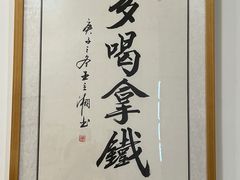 多喝拿鐵
庚子之冬王之湘書